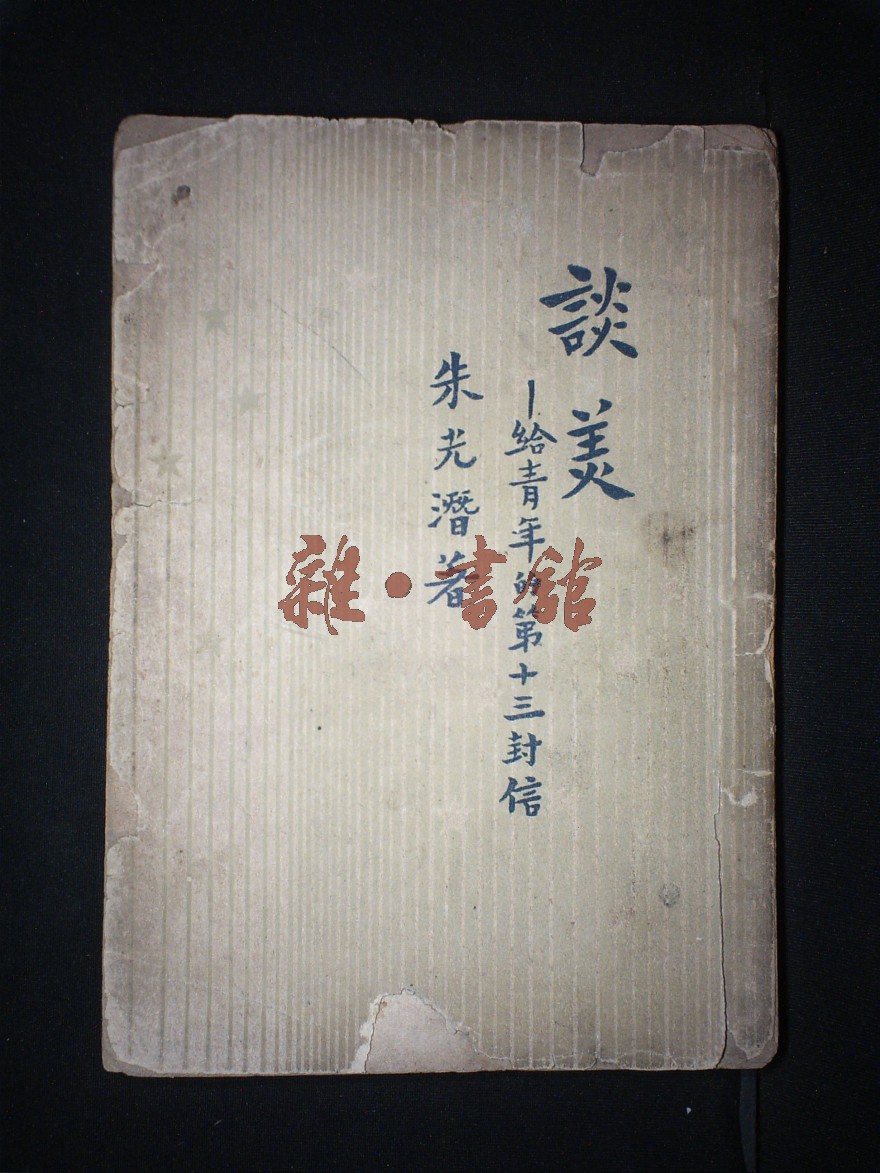 談美
—給青年的第十三封信
朱光潛著
雜·書館